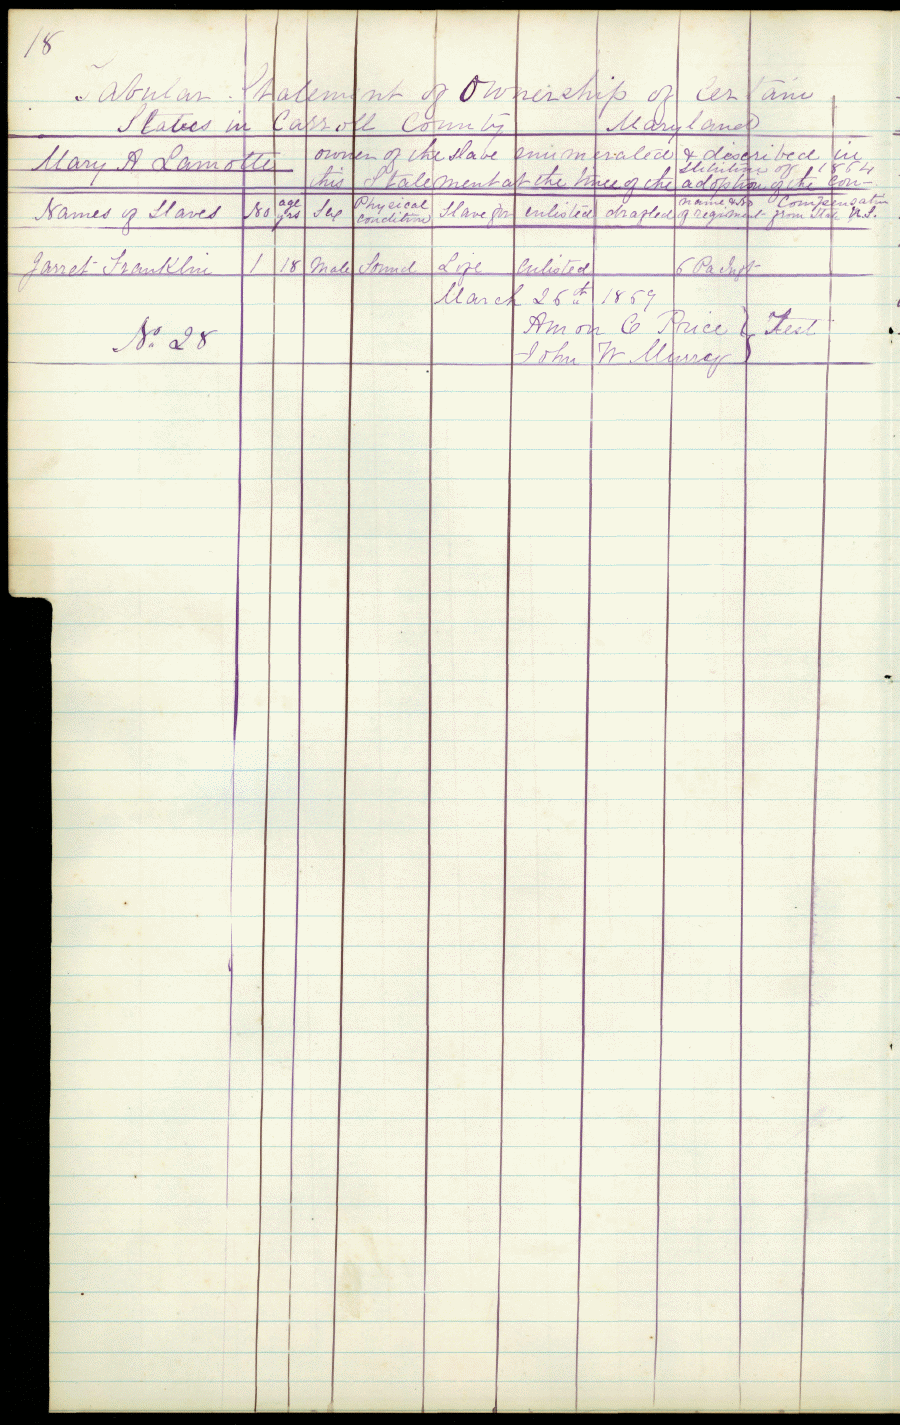 18
Tabular Statement of Ownership of Certain
Slaves in Carroll County Maryland
Mary A Lamotte owner of the slave enumerated & discribed in
this Statement at the time of the adoption of the Con-
stitution of 1864
Names of Slaves No age yrs Sex Physical condition Slave for enlisted drafted name & No of regiment Compensation from State U.S.
Garret Franklin 1 18 Male Sound Life Enlisted 6 Pa Regt
March 26th 1867
Amon C Price } Test
John W Murray
No. 28